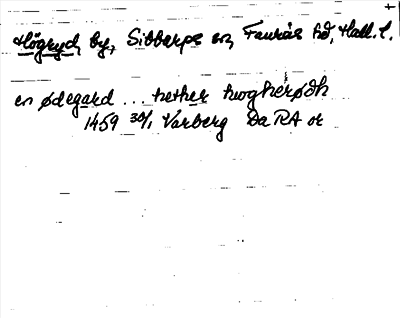 Högryd, by, Sibbarps sn, Faurås hd, Hall. l.
en ødegard ... hether hwgherødh
1459 30/1 Varberg Da RA or